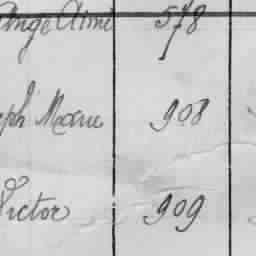 Ange Aimé 578
eph Marie 908
Victor 909